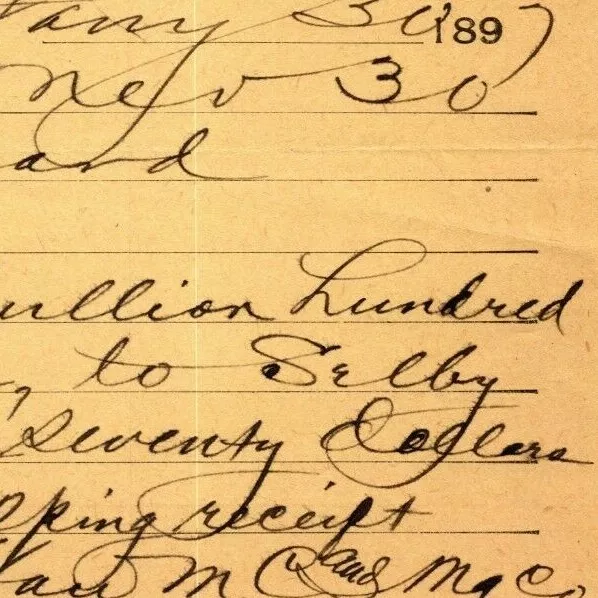 30 1897
Nev 30
and
ullion hundred
to Selby
seventy dollars
pping receipt